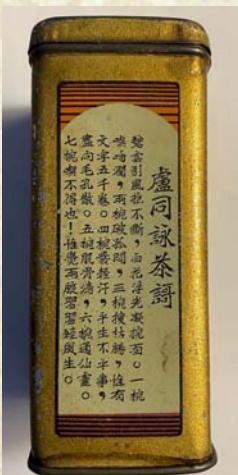 盧同詠茶謌
碧雲引風吹不斷，白花浮光凝椀面。一椀
喉吻潤，兩椀破孤悶，三椀搜枯腸，惟有
文字五千卷。四椀發輕汗，平生不平事，
盡向毛孔散。五椀肌骨清，六椀通仙靈。
七椀喫不得也！惟覺兩腋習習輕風生。